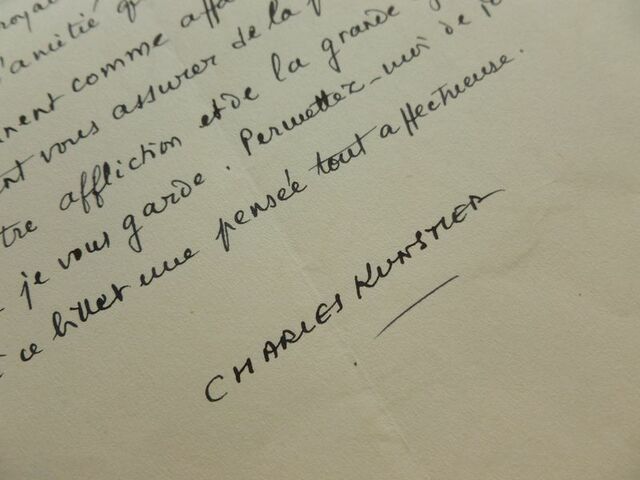 d'amitié
comme
vous assurer de la
affliction et de la grande
je vous garde. Permettez-moi de
ce billet une pensée tout affectueuse.
CHARLES KUNSTLER